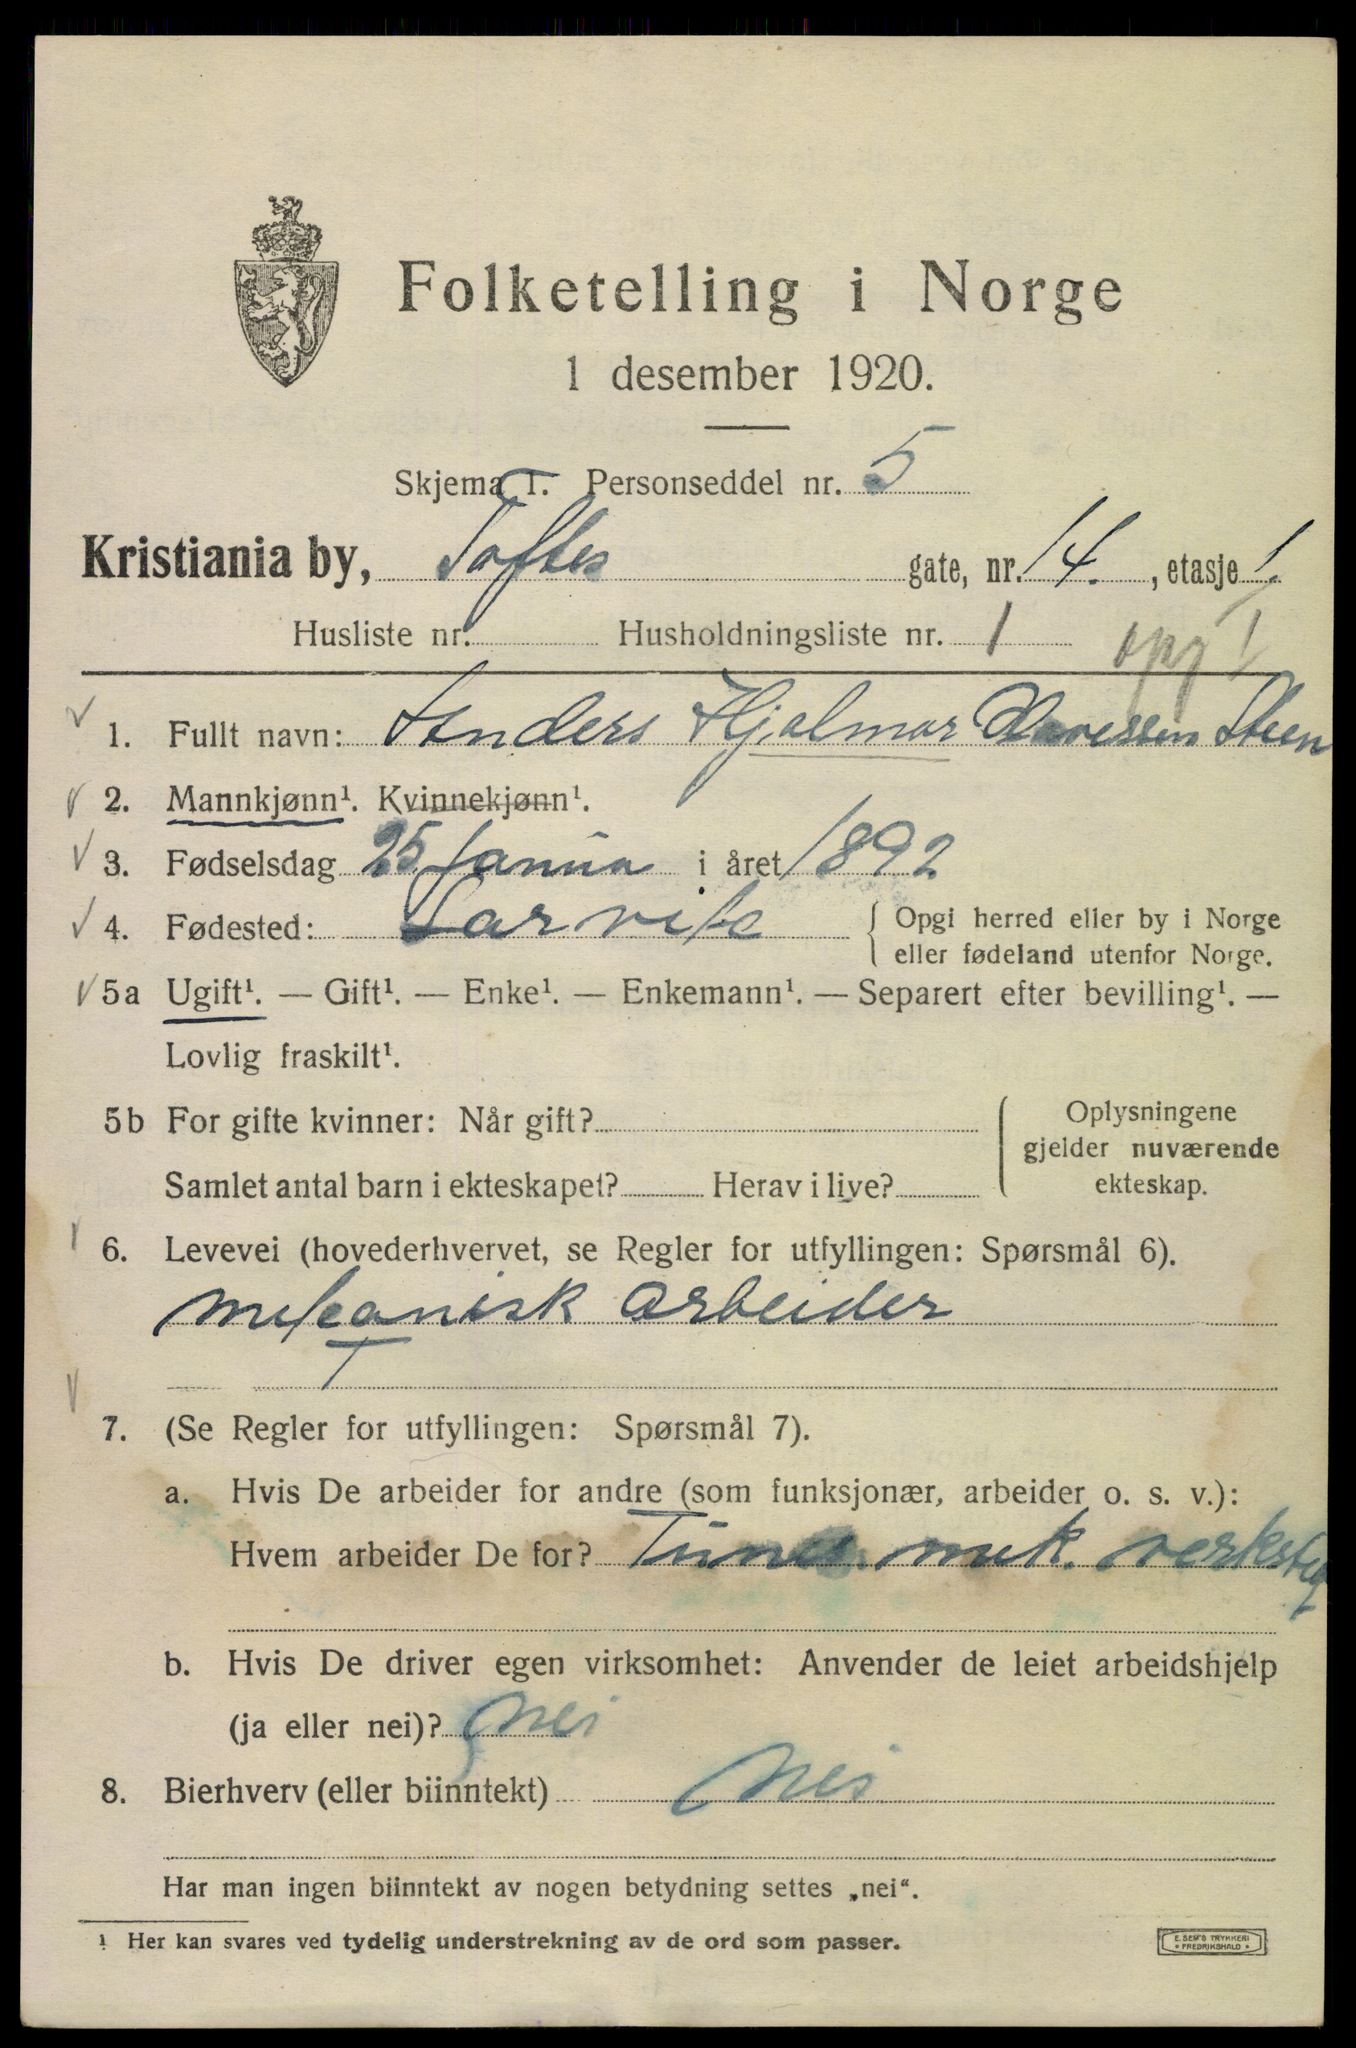 Folketelling i Norge
1 desember 1920.
Skjema 1. Personseddel nr. 5
Kristiania by, Toftes gate, nr. 14., etasje 1.
Husliste nr. Husholdningsliste nr. 1 opg 1
1. Fullt navn: Anders Hjalmar Steen
2. Mannkjønn¹. Kvinnekjønn¹.
3. Fødselsdag 25 Janua i året 1892
4. Fødested: Larvik { Opgi herred eller by i Norge
eller fødeland utenfor Norge.
5a Ugift¹. — Gift¹. — Enke¹. — Enkemann¹. — Separert efter bevilling¹. —
Lovlig fraskilt¹.
5b For gifte kvinner: Når gift? Oplysningene
gjelder nuværende
Samlet antal barn i ekteskapet? Herav i live? ekteskap.
6. Levevei (hovederhvervet, se Regler for utfyllingen: Spørsmål 6).
mekanisk arbeider
7. (Se Regler for utfyllingen: Spørsmål 7).
a. Hvis De arbeider for andre (som funksjonær, arbeider o. s. v.):
Hvem arbeider De for? mek. verksted
b. Hvis De driver egen virksomhet: Anvender de leiet arbeidshjelp
(ja eller nei)? Nei
8. Bierhverv (eller biinntekt) Nei
Har man ingen biinntekt av nogen betydning settes „nei“.
¹ Her kan svares ved tydelig understrekning av de ord som passer.
E. SEM'S TRYKKERI
* FREDRIKSHALD *